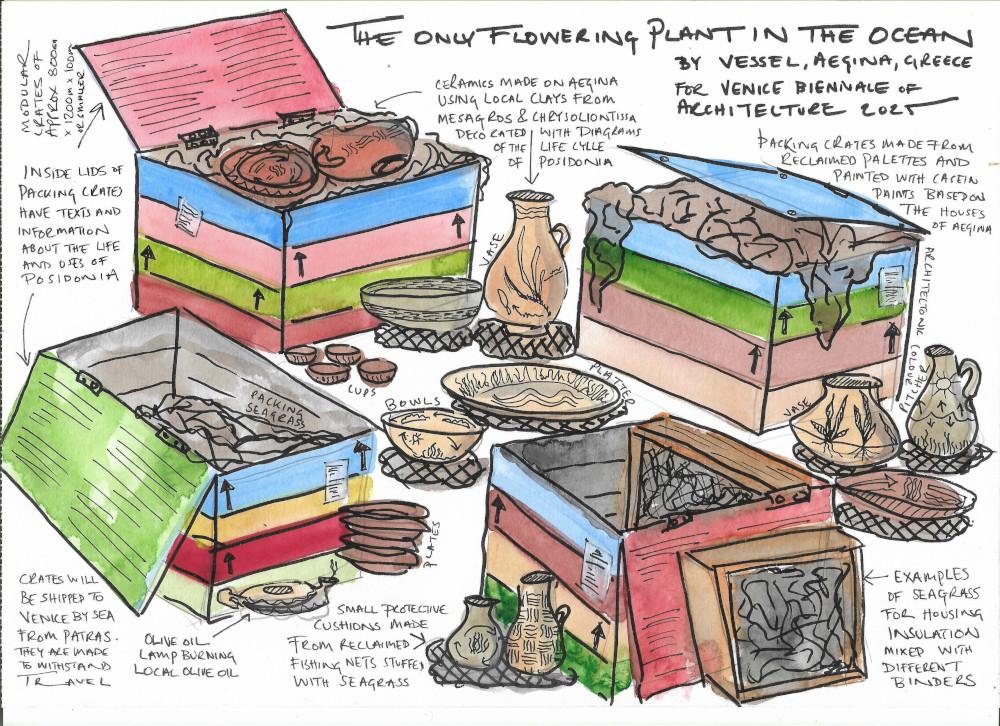 THE ONLY FLOWERING PLANT IN THE OCEAN
BY VESSEL, AEGINA, GREECE
FOR VENICE BIENNALE OF
ARCHITECTURE 2025
MODULAR
CRATES OF
APPROX 800cm
x 1200m x 100cm
OR SMALLER
CERAMICS MADE ON AEGINA
USING LOCAL CLAYS FROM
MESAGROS & CHRYSOLIONTISSA
DECORATED WITH DIAGRAMS
OF THE LIFE CYCLE
OF POSIDONIA
PACKING CRATES MADE FROM
RECLAIMED PALETTES AND
PAINTED WITH CASEIN
PAINTS BASED ON
THE HOUSES
OF AEGINA
INSIDE LIDS OF
PACKING CRATES
HAVE TEXTS AND
INFORMATION
ABOUT THE LIFE
AND USES OF
POSIDONIA
VASE
ARCHITECTONIC COLOUR
CUPS
PLATTER
BOWLS
PACKING
SEAGRASS
VASE
PITCHER
PLATES
CRATES WILL
BE SHIPPED TO
VENICE BY SEA
FROM PATRAS.
THEY ARE MADE
TO WITHSTAND
TRAVEL
OLIVE OIL
LAMP BURNING
LOCAL OLIVE OIL
SMALL PROTECTIVE
CUSHIONS MADE
FROM RECLAIMED
FISHING NETS STUFFED
WITH SEAGRASS
EXAMPLES
OF SEAGRASS
FOR HOUSING
INSULATION
MIXED WITH
DIFFERENT
BINDERS